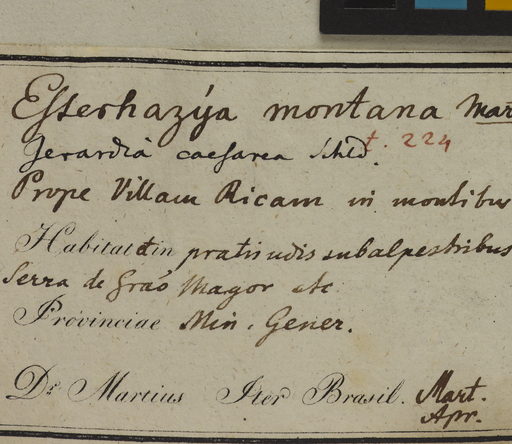 Esserhazÿa montana Mar
Gerardia caesarea Schld.
t. 224
Prope Villam Ricam in montibus
Habitat in pratis udis subalpestribus
Serra de Graõ Magor etc
Provinciae Min. Gener.
Dr. Martius Iter Brasil. Mart.
Apr.